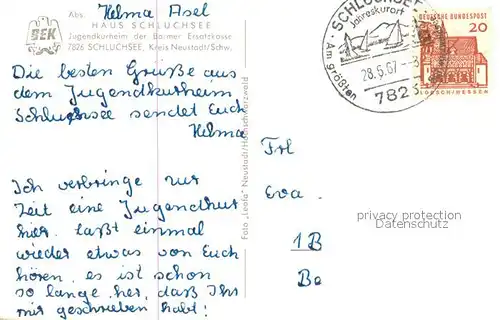 Abs. Helma Asel
HAUS SCHLUCHSEE
BEK
Jugendkurheim der Barmer Ersatzkasse
7826 SCHLUCHSEE, Kreis Neustadt/Schw.
Die besten Grüße aus
dem Jugendkurheim
Schluchsee sendet Euch
Helma
Ich verbringe zur
Zeit eine Jugendkur
hier. laßt einmal
wieder etwas von Euch
hören, es ist schon
so lange her, daß Ihr
mir geschrieben habt!
Foto „Leofa" Neustadt/Hochschwarzwald
SCHLUCHSEE
Jahreskurort
Am größten
28.6.67
782
DEUTSCHE BUNDESPOST
20
LORSCH/HESSEN
Frl
Eva
privacy protection
Datenschutz
1B
Be